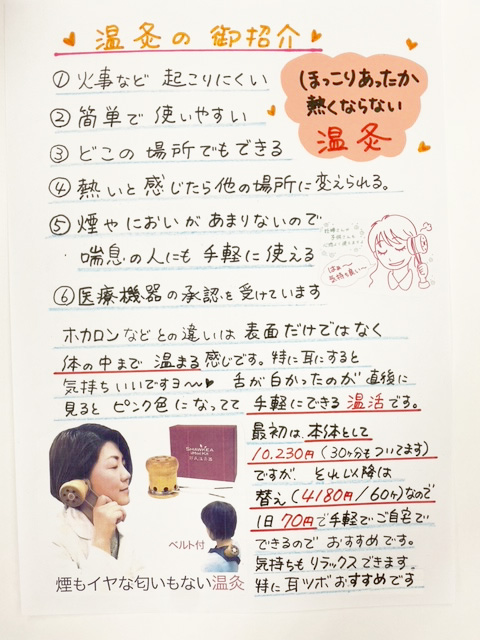 温灸の御招介
① 火事など 起こりにくい
② 簡単で 使いやすい
③ どこの 場所でもできる
④ 熱いと 感じたら他の場所に変えられる。
⑤ 煙や においが あまりないので
喘息の人にも 手軽に 使える
⑥ 医療機器の承認を受けています
ほっこりあったか
熱くならない
温灸
はぁ〜
気持ち良い〜
ホカロンなどとの違いは 表面だけではなく
体の中まで 温まる 感じです。特に耳にすると
気持ちいいですヨ〜♥ 舌が白かったのが 直後に
見ると ピンク色になってて 手軽にできる 温活です。
最初は、本体として
10.230円(30ヶ分もついてます)
ですが、それ以降は
替え(4180円/60ヶ)なので
1日 70円で手軽で ご自宅で
できるので おすすめです。
気持ちも リラックスできます。
特に 耳ツボおすすめです
ベルト付
煙もイヤな匂いもない温灸